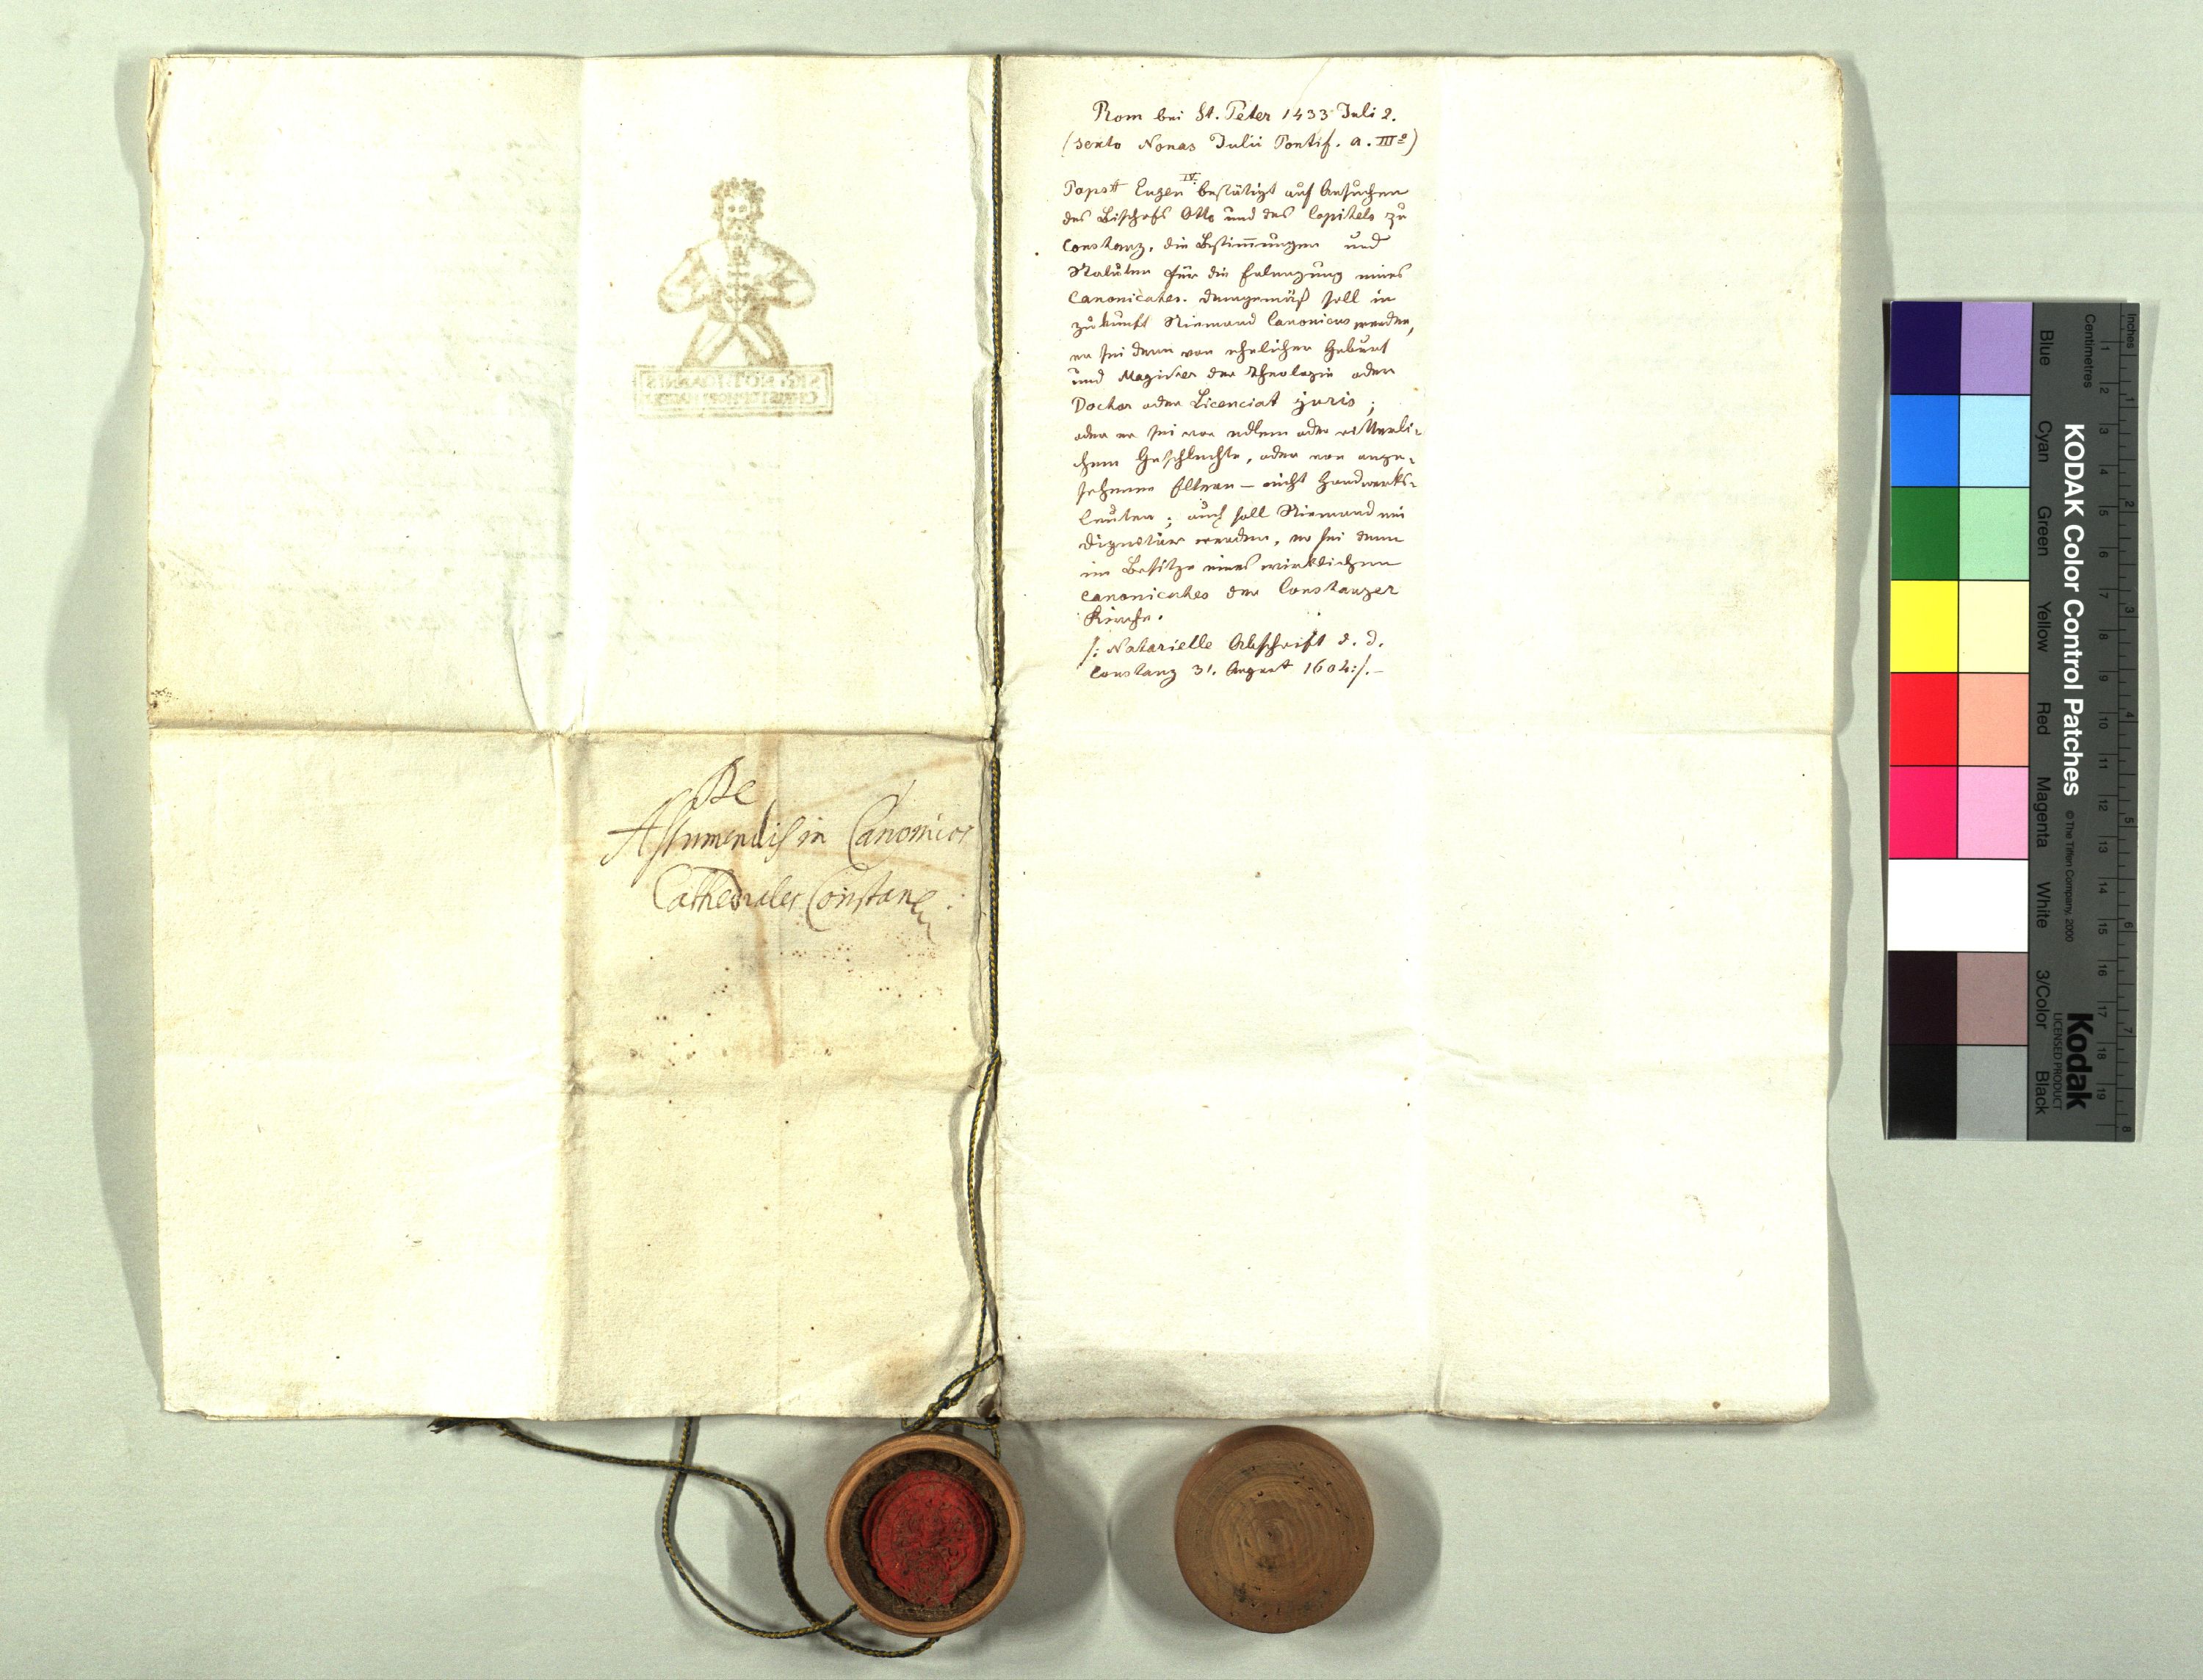 De
Assumendis in Canonicos
Cathedrales Constan.
Rom bei St. Peter 1433 Juli 2.
(sexto Nonas Julii Pontif. a. IIIº)
Papst Eugen IV. bestätigt auf Ansuchen
des Bischofs Otto und des Capitels zu
Constanz, die Bestimmungen und
Statuten für die Erlangung eines
Canonicates. Demgemäß soll in
Zukunft Niemand Canonicus werden,
er sei denn von ehelicher Geburt
und Magister der Theologie oder
Doctor oder Licenciat juris;
oder er sei von edlem oder ritterli-
chem Geschlechte, oder von ange-
sehenen Eltern – nicht Handwerks-
leuten; auch soll Niemand ein
Dignitär werden, er sei denn
im Besitze eines wirklichen
Canonicates der Constanzer
Kirche.
/: Notarielle Abschrift d. d.
Constanz 31. August 1602 :/. –
Inches
Centimetres
KODAK Color Control Patches
© The Tiffen Company, 2000
Kodak
LICENSED PRODUCT
Blue
Cyan
Green
Yellow
Red
Magenta
White
3/Color
Black
1 2 3 4 5 6 7 8 9 10 11 12 13 14 15 16 17 18 19
1 2 3 4 5 6 7 8